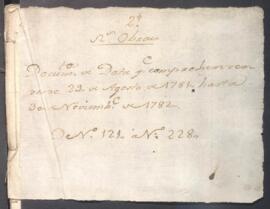 2º
Nº Obras
Docum.s de Data q.e comprehenden
de 22 de Agosto de 1781 hasta
30 Noviemb.e de 1782.
De Nº 121 a Nº 228.